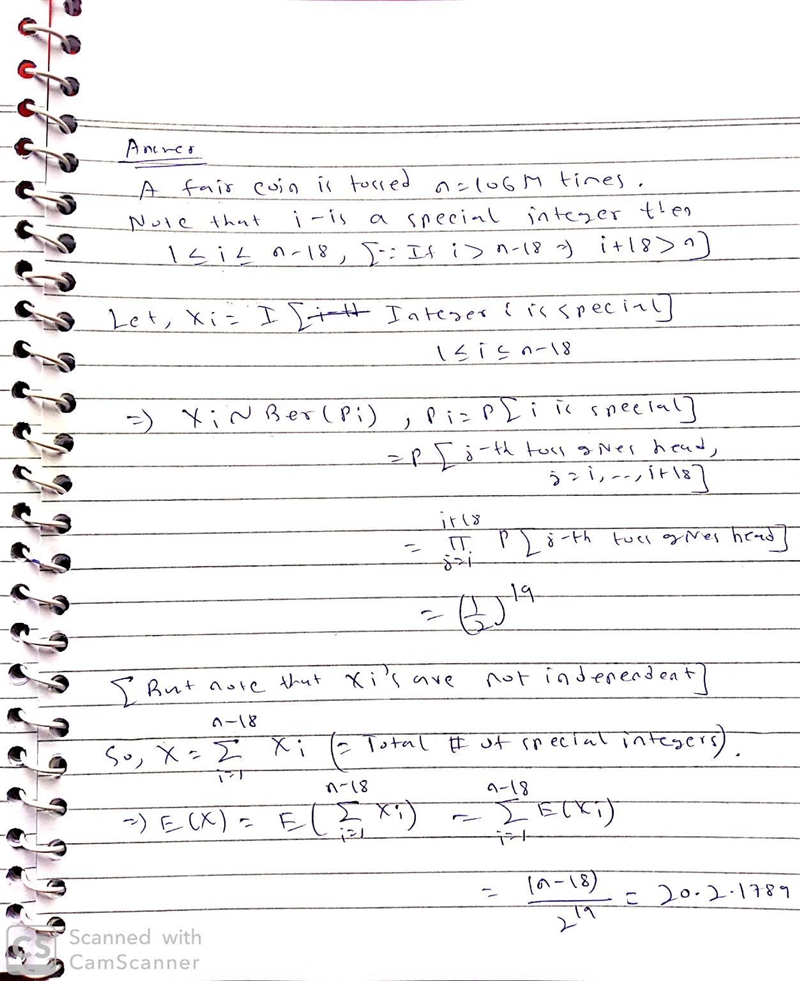 Answer
A fair coin is tossed n=106M times.
Note that i-is a special integer then
1 ≤ i ≤ n-18, [∵ If i > n-18 ⇒ i+18 > n]
Let, Xi = I [i-th Integer i is special]
1 ≤ i ≤ n-18
⇒ Xi ~ Ber(Pi), Pi = P[i is special]
= P[j-th toss gives head,
j = i, ..., i+18]
= ∏_{j=i}^{i+18} P[j-th toss gives head]
= (1/2)^19
[But note that Xi's are not independent]
So, X = Σ_{i=1}^{n-18} Xi (= Total # of special integers).
⇒ E(X) = E(Σ_{i=1}^{n-18} Xi) = Σ_{i=1}^{n-18} E(Xi)
= (n-18)/2^19 = 20.2.1789
CS Scanned with
CamScanner